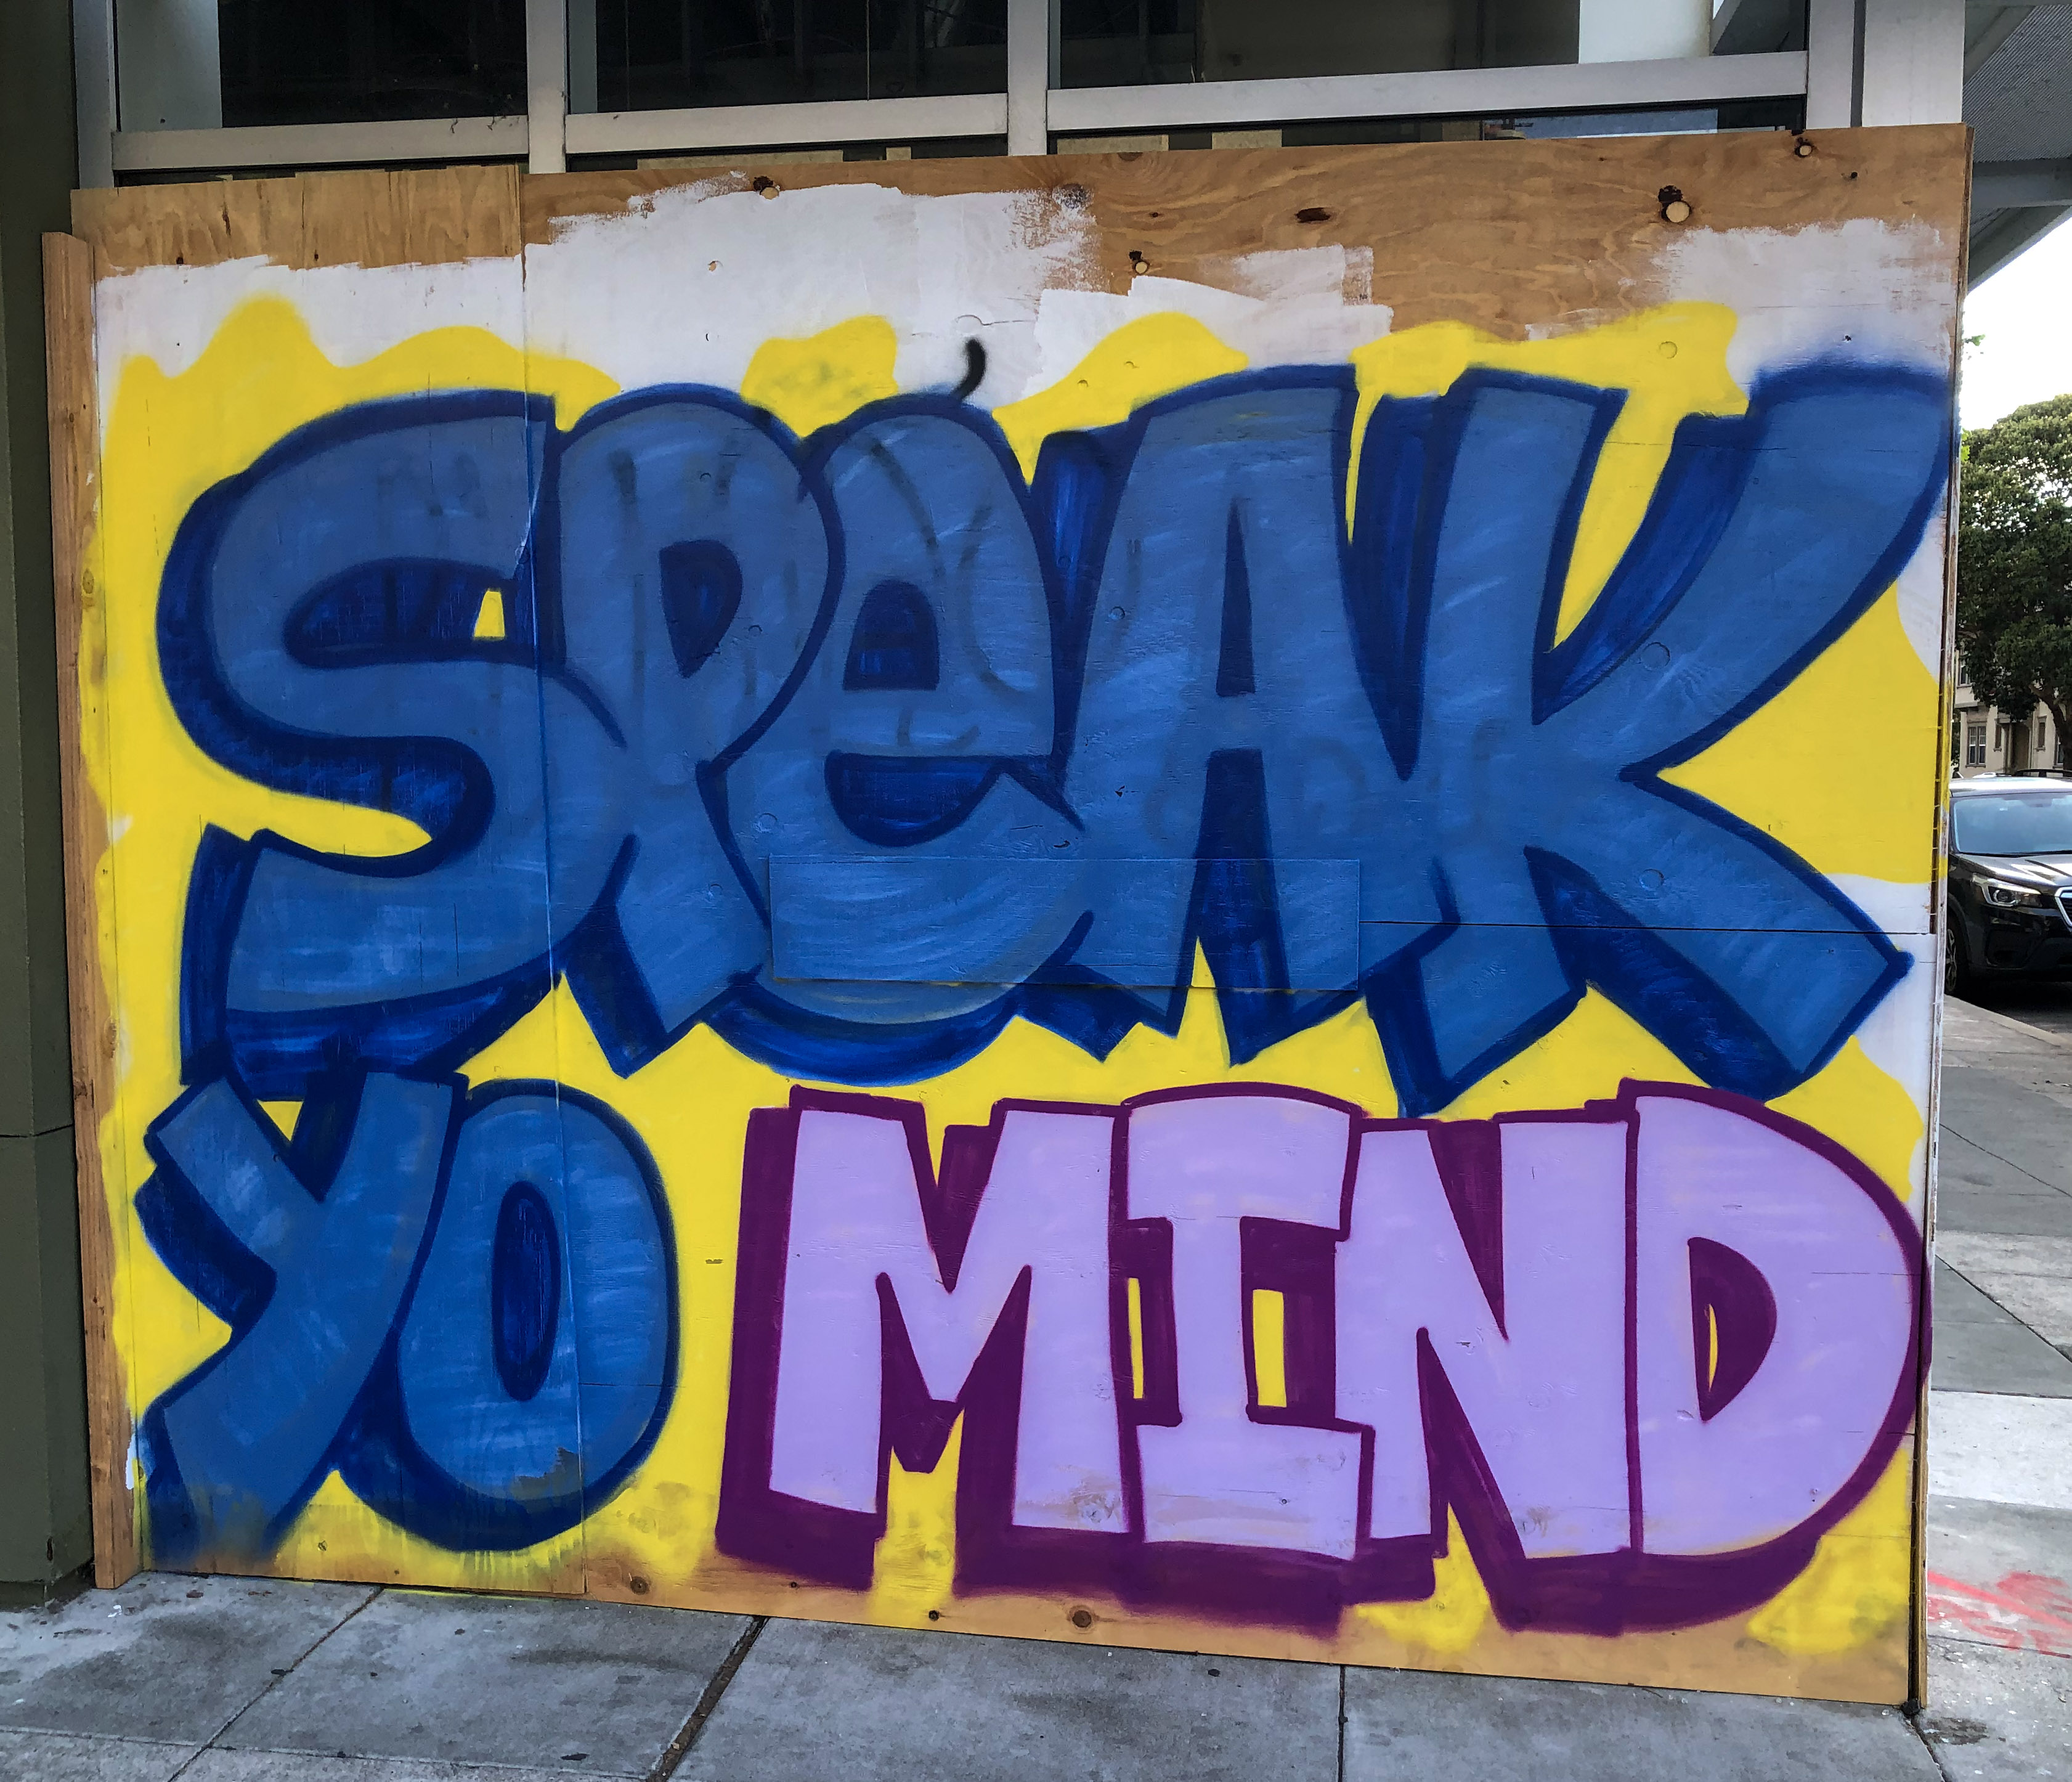 SPeAK
YO MIND